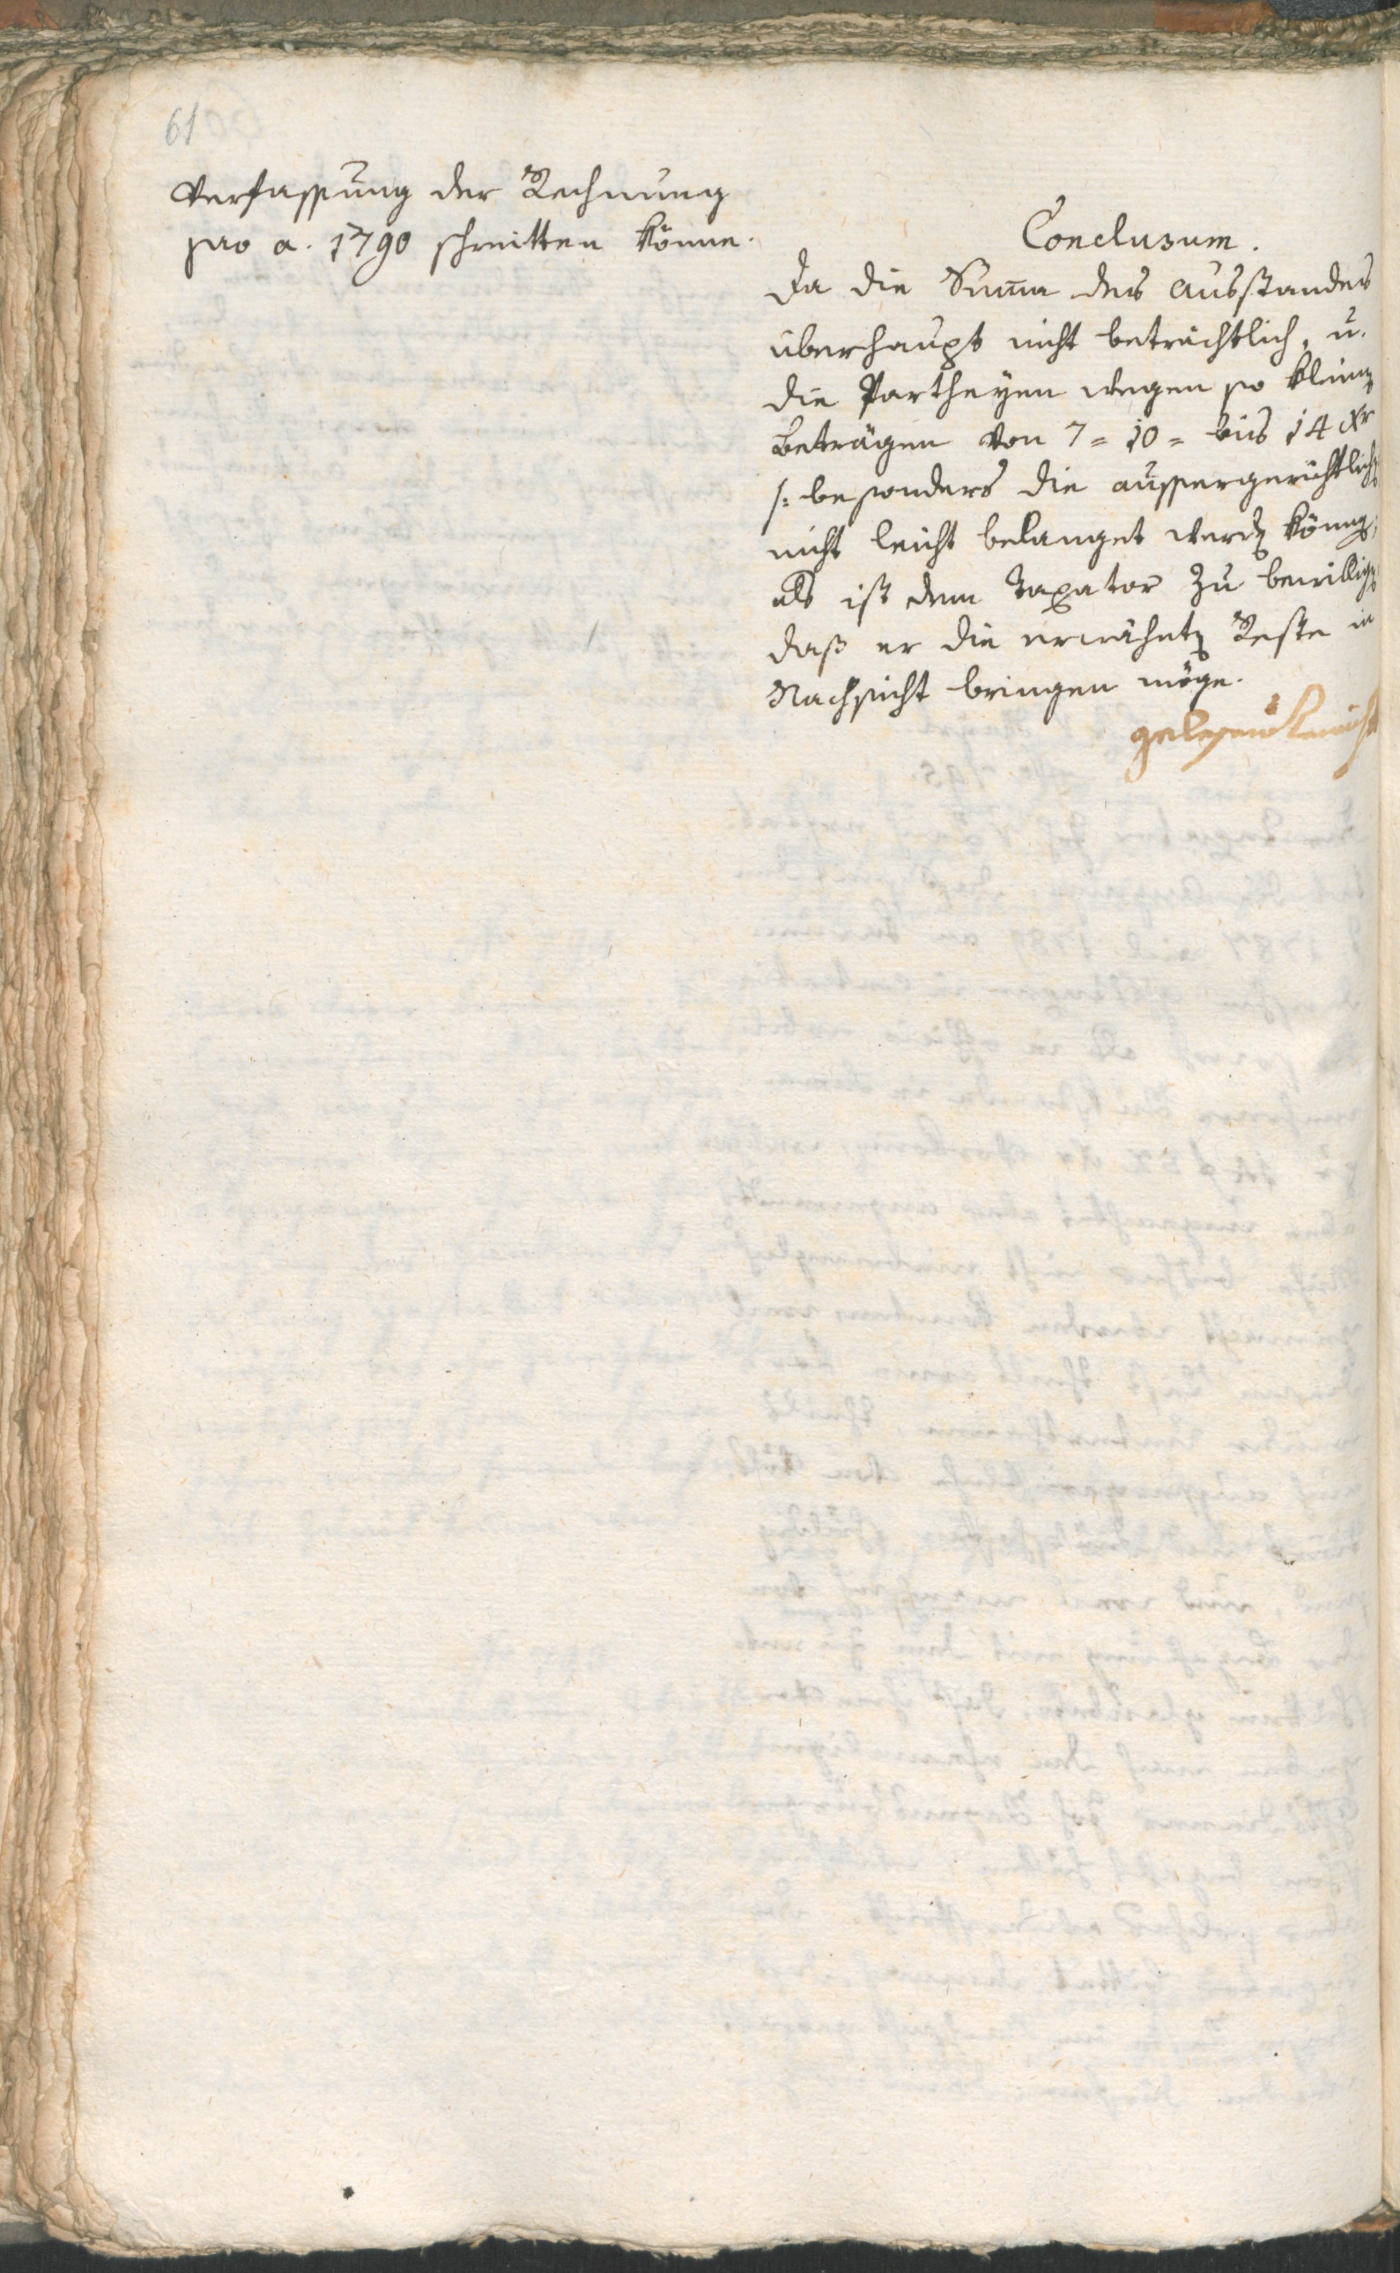 61
Verfassung der Rechnung
pro a. 1790 schreitten könne.
Conclusum.
Da die Suma des Ausstandes
überhaupt nicht beträchtlich, u.
die Partheyen wegen so kleinen
Beträgen von 7 = 10 = bis 14 Xr
/: besonders die aussergerichtlichen
nicht leicht belanget werden können,
als ist dem Taxator zu bewilligen
daß er die erwähnten Reste in
Nachsicht bringen möge.
gelesen